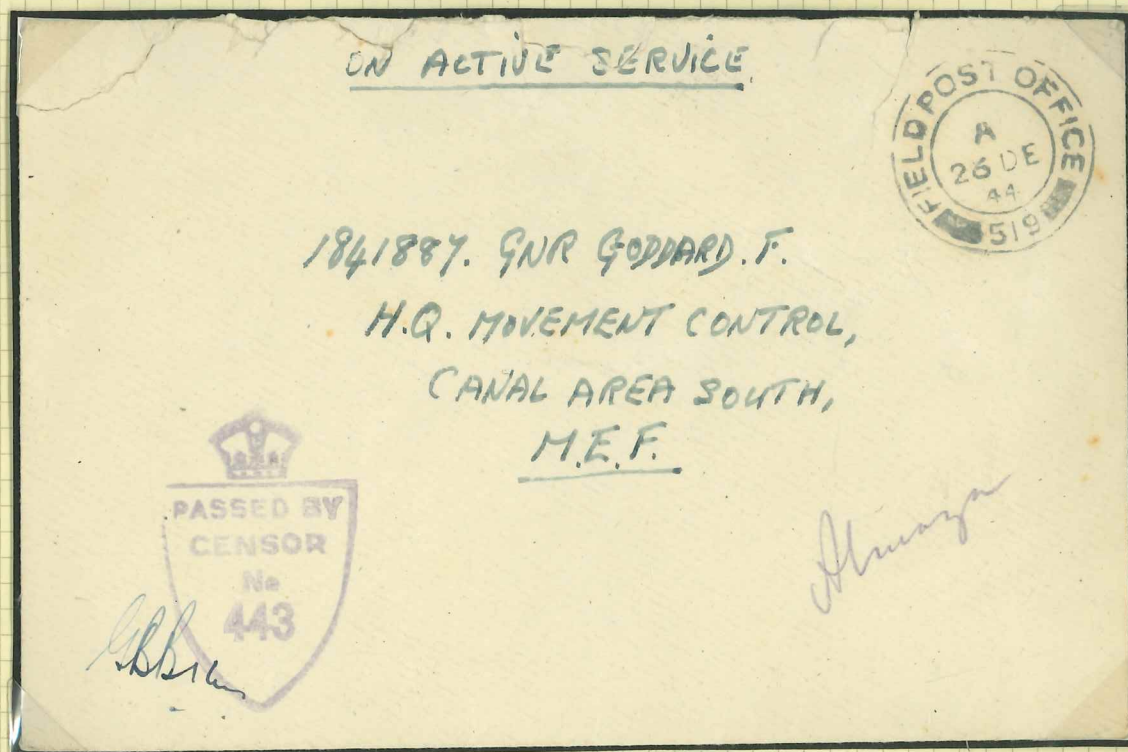 ON ACTIVE SERVICE
FIELD POST OFFICE
A
26 DE
44
519
1841887. GNR GODDARD. F.
H.Q. MOVEMENT CONTROL,
CANAL AREA SOUTH,
M.E.F.
PASSED BY
CENSOR
No
443
Almaza